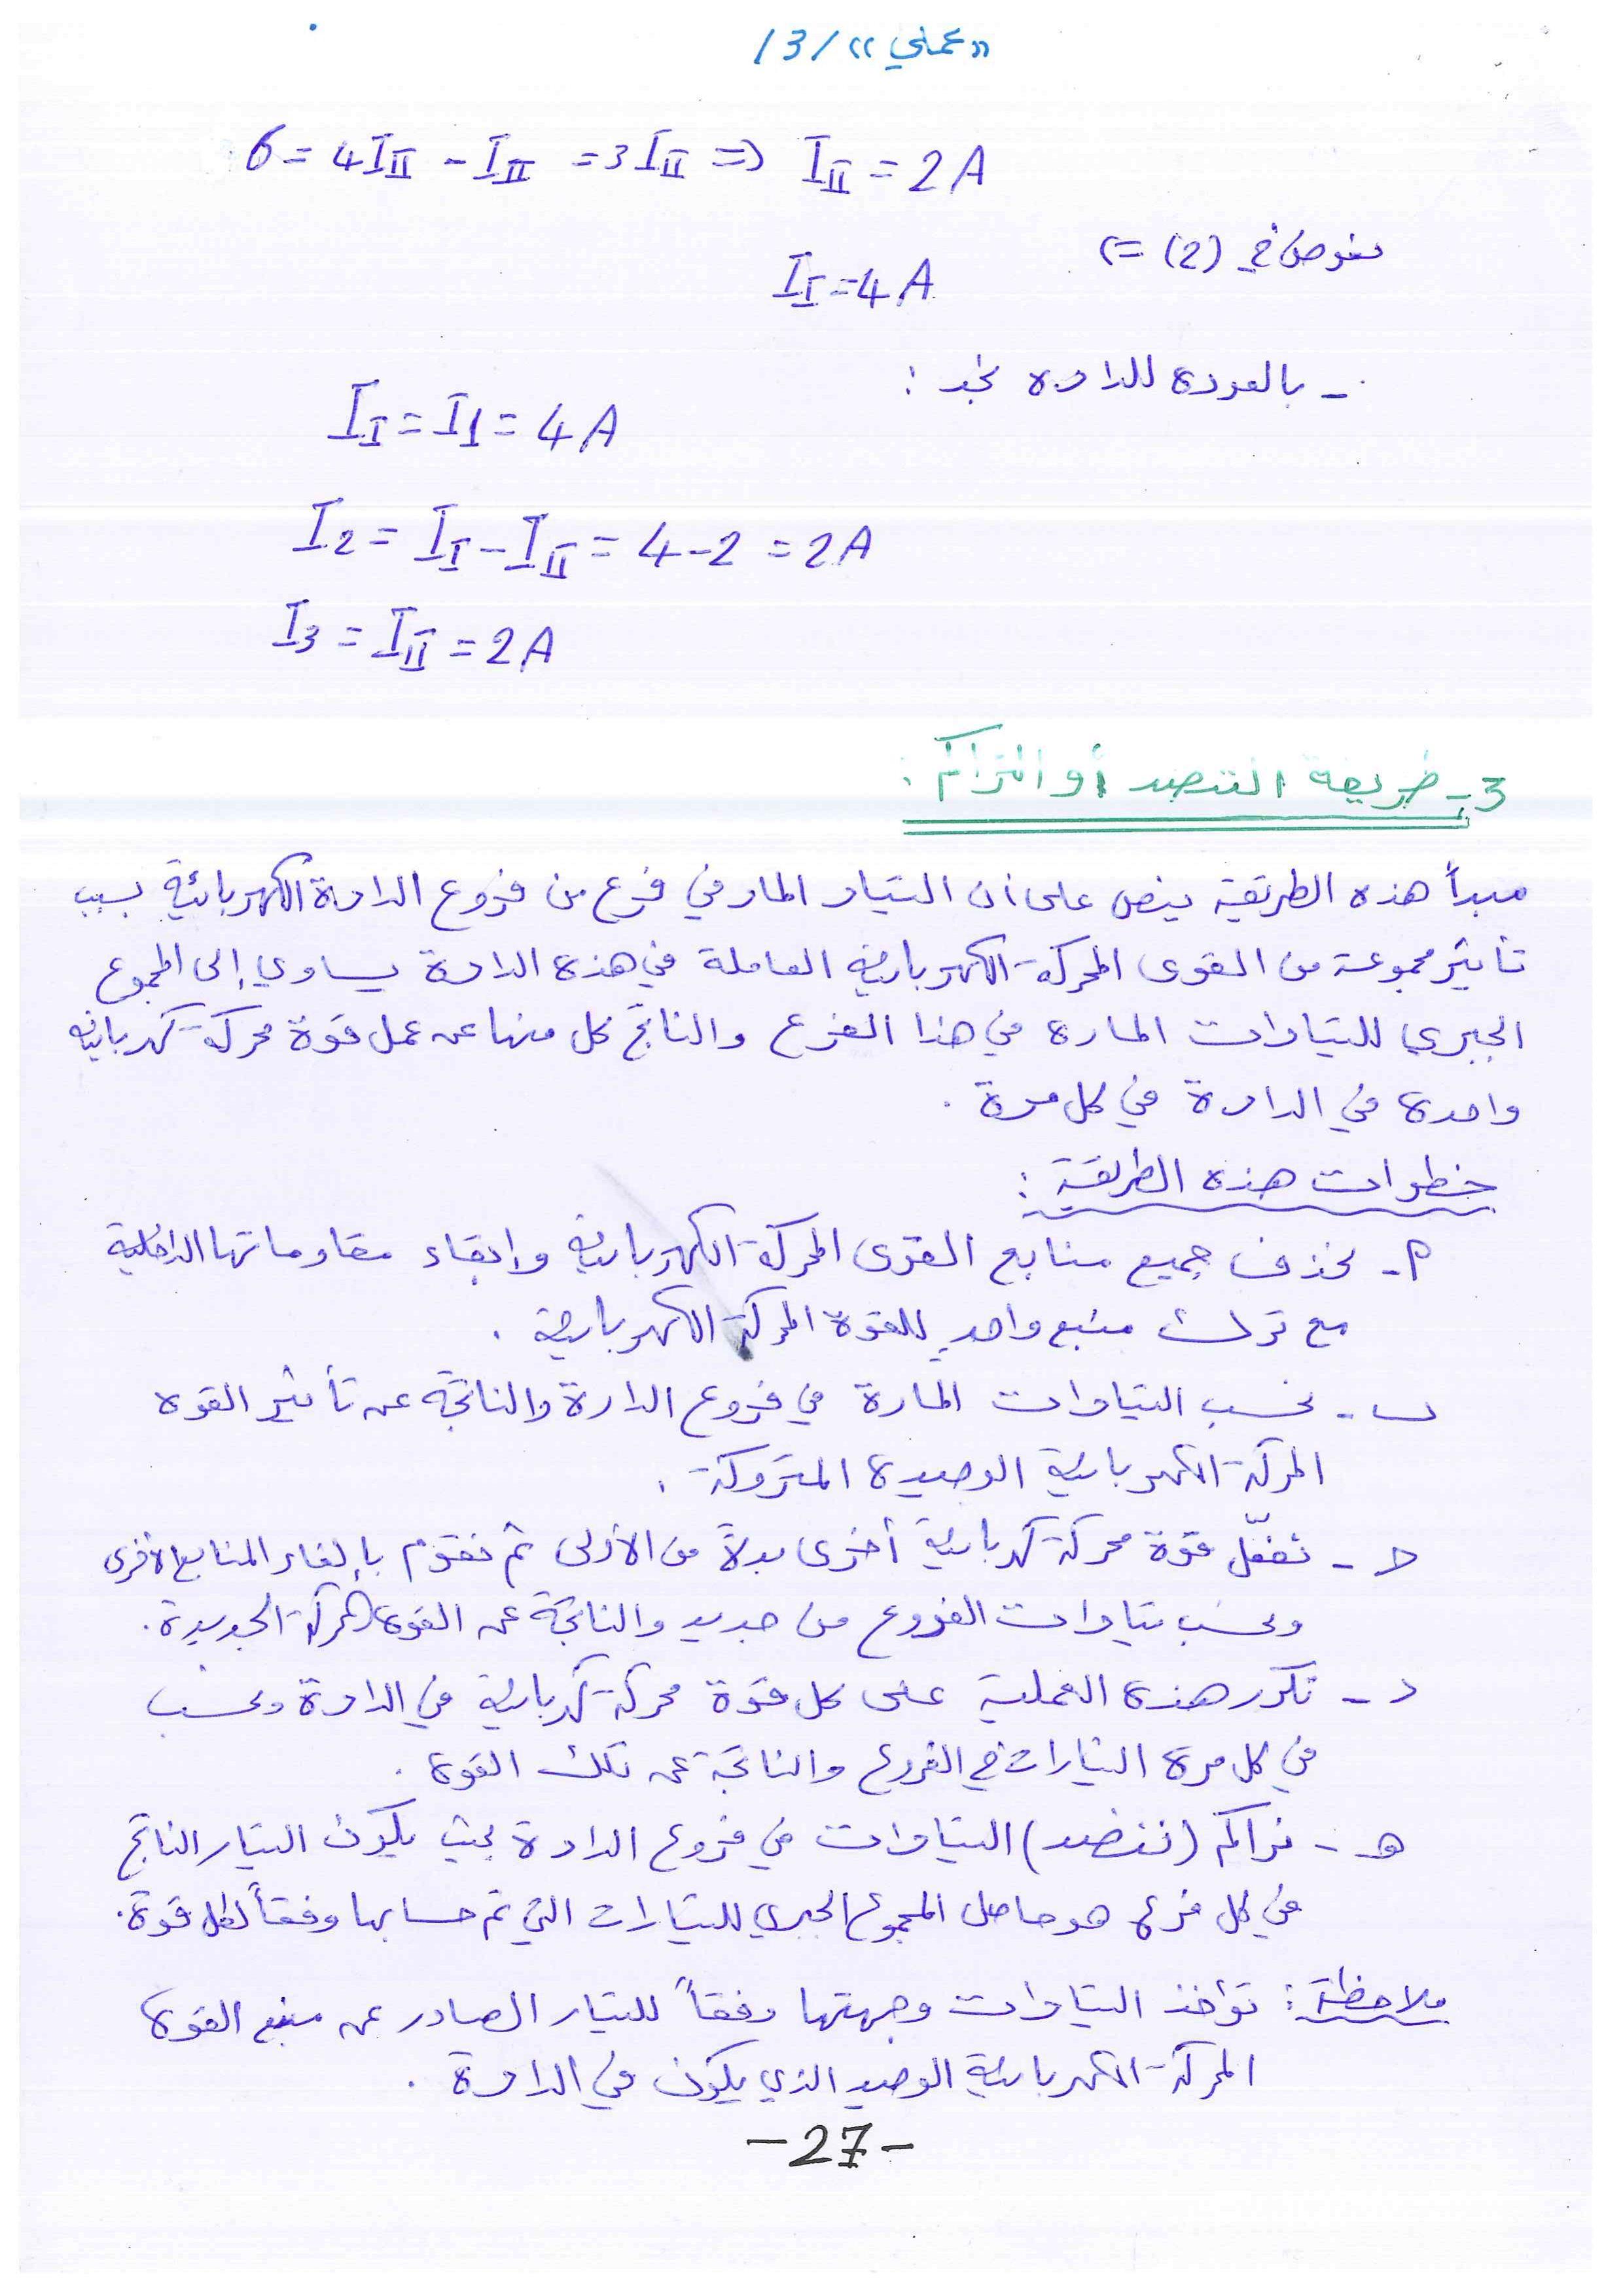 «عملي» /3/
6 = 4I_II - I_II = 3I_II => I_II = 2A
نعوض في (2) =>
I_I = 4A
- بالعودة للدارة نجد :
I_I = I1 = 4A
I2 = I_I - I_II = 4 - 2 = 2A
I3 = I_II = 2A
3- طريقة التنضد أو التراكم :
مبدأ هذه الطريقة ينص على أن التيار المار في فرع من فروع الدارة الكهربائية بسبب
تأثير مجموعة من القوى المحركة الكهربائية العاملة في هذه الدارة يساوي إلى المجموع
الجبري للتيارات المارة في هذا الفرع والناتج كل منها عن عمل قوة محركة كهربائية
واحدة في الدارة في كل مرة .
خطوات هذه الطريقة :
م- نحذف جميع منابع القوى المحركة الكهربائية وإبقاء مقاوماتها الداخلية
مع ترك منبع واحد للقوة المحركة الكهربائية .
ب- نحسب التيارات المارة في فروع الدارة والناتجة عن تأثير القوة
المحركة الكهربائية الوحيدة المتروكة .
ج- نفعّل قوة محركة كهربائية أخرى بدلاً من الأولى ثم نقوم بإلغاء المنابع الأخرى
ونحسب تيارات الفروع من جديد والناتجة عن القوة المحركة الجديدة .
د- نكرر هذه العملية على كل قوة محركة كهربائية في الدارة ونحسب
في كل مرة التيارات في الفروع والناتجة عن تلك القوة .
هـ- نراكم (ننضد) التيارات في فروع الدارة بحيث يكون التيار الناتج
في كل فرع هو حاصل المجموع الجبري للتيارات التي تم حسابها وفقاً لكل قوة .
ملاحظة : تؤخذ التيارات وجهتها وفقاً للتيار الصادر عن منبع القوة
المحركة الكهربائية الوحيد الذي يكون في الدارة .
-27-